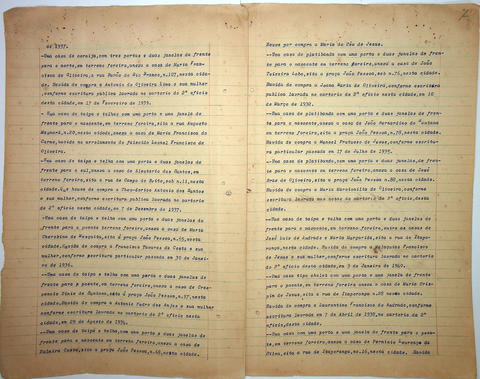 de 1937.
-Uma casa de esquina, com tres portas e duas janelas de frente
para o norte, em terreno foreiro, anexa a casa de Maria
de Oliveira, a rua Barão do Rio Branco, n.107, nesta cidade.
Havida de compra a Antonio de Oliveira Lima e sua mulher
,conforme escritura publica lavrada no cartorio do 2º oficio
desta cidade, em 17 de Fevereiro de 1939.
-Uma casa de taipa e telha com uma porta e duas janelas de
frente para o nascente, em terreno foreiro, sito a rua Augusto
Maynard, n.80, nesta cidade, anexo a casa de Maria Francisca do
Carmo, havida no arrolamento do falecido Manoel Francisco de
Oliveira.
-Uma casa de taipa e telha com uma porta e duas janelas de
frente para o sul, anexa a casa de dos Santos, em
terreno foreiro, sito a rua de Campo do Brito, sob n.11, nesta
cidade. houve de compra a Antonio dos Santos
e sua mulher, conforme escritura publica lavrada no cartorio do
2º oficio nesta cidade, em 7 de Dezembro de 1937.
--Uma casa de taipa e telha, com uma porta e duas janelas de
frente para o poente, em terreno foreiro, anexa a casa de Maria
de Mesquita, sito á praça João Pessoa, n.65, nesta
cidade. Havida de compra a Francisco Tavares da Costa e sua
mulher, conforme escritura particular passada em 30 de Janei-
ro de 1936.
--Uma casa de taipa e telha, com uma porta e duas janelas de
frente para o poente, em terreno foreiro, anexa a casa de
Diniz de Santana, sito á praça João Pessoa, n.57, nesta
cidade. Havida de compra a Antonio Pedro dos Anjos e sua mulher,
conforme escritura lavrada no cartorio do 2º oficio desta cidade,
em 29 de Agosto de 1934.
--Uma casa de taipa e telha, com uma porta e duas janelas de
frente para o nascente em terreno foreiro, anexa a casa de
Castro, sito a praça João Pessoa, n.68, nesta cidade.
Houve por compra a Maria do Céu de Jesus.
--Uma casa de platibanda com uma porta e duas janelas de fren-
te para o nascente em terreno foreiro, anexa a casa de João
Teixeira Lobo, sito a praça João Pessoa, sob n.76, nesta cidade.
Havida de compra a Joana Maria de Oliveira, conforme escritura
publica lavrada no cartorio do 2º oficio desta cidade, em 16
de Março de 1932.
--Uma casa de platibanda com uma porta e duas janelas de fren-
te para o nascente a casa de João Bernardino de Santana
em terreno foreiro, sito a praça João Pessoa, n.78, nesta cidade.
Havida de compra a Manoel Protasio de Jesus, conforme escri-
tura particular passada em 17 de Julho de 1935.
--Uma casa de platibanda, com uma porta e duas janelas de fren-
te para o nascente em terreno foreiro, anexa a casa de José
de Oliveira, sito a praça João Pessoa, n.80, nesta cidade.
Havida de compra a Maria de Oliveira, conforme
escritura lavrada nas notas do cartorio do 2º oficio,
desta cidade.
--Uma casa de taipa e telha, com uma porta e duas janelas de
frente para o nascente em terreno foreiro, anexa a casa de
José Luiz de Andrade e Maria Margarida, sito a rua de Itapo-
ranga, nesta cidade. Havida de compra a Francisco
de Jesus e sua mulher, conforme escritura lavrada no cartorio
do 2º oficio desta cidade, em 3 de Janeiro de 1940.
--Uma casa tipo chalet com uma porta e duas janelas de fren-
te para o nascente em terreno foreiro, anexa a casa de Maria
de Jesus, sito a rua de Itaporanga, n.28 nesta cidade.
Havida de compra a Laurentino Francisco de Andrade, conforme
escritura lavrada em 7 de Abril de 1938, no cartorio do 2º
oficio, desta cidade.
--Uma casa com uma porta e duas janelas de frente para o poen-
te, em terreno foreiro, anexa a casa de Lourença da
Silva, sito a rua de Itaporanga, n.16, nesta cidade. Havida